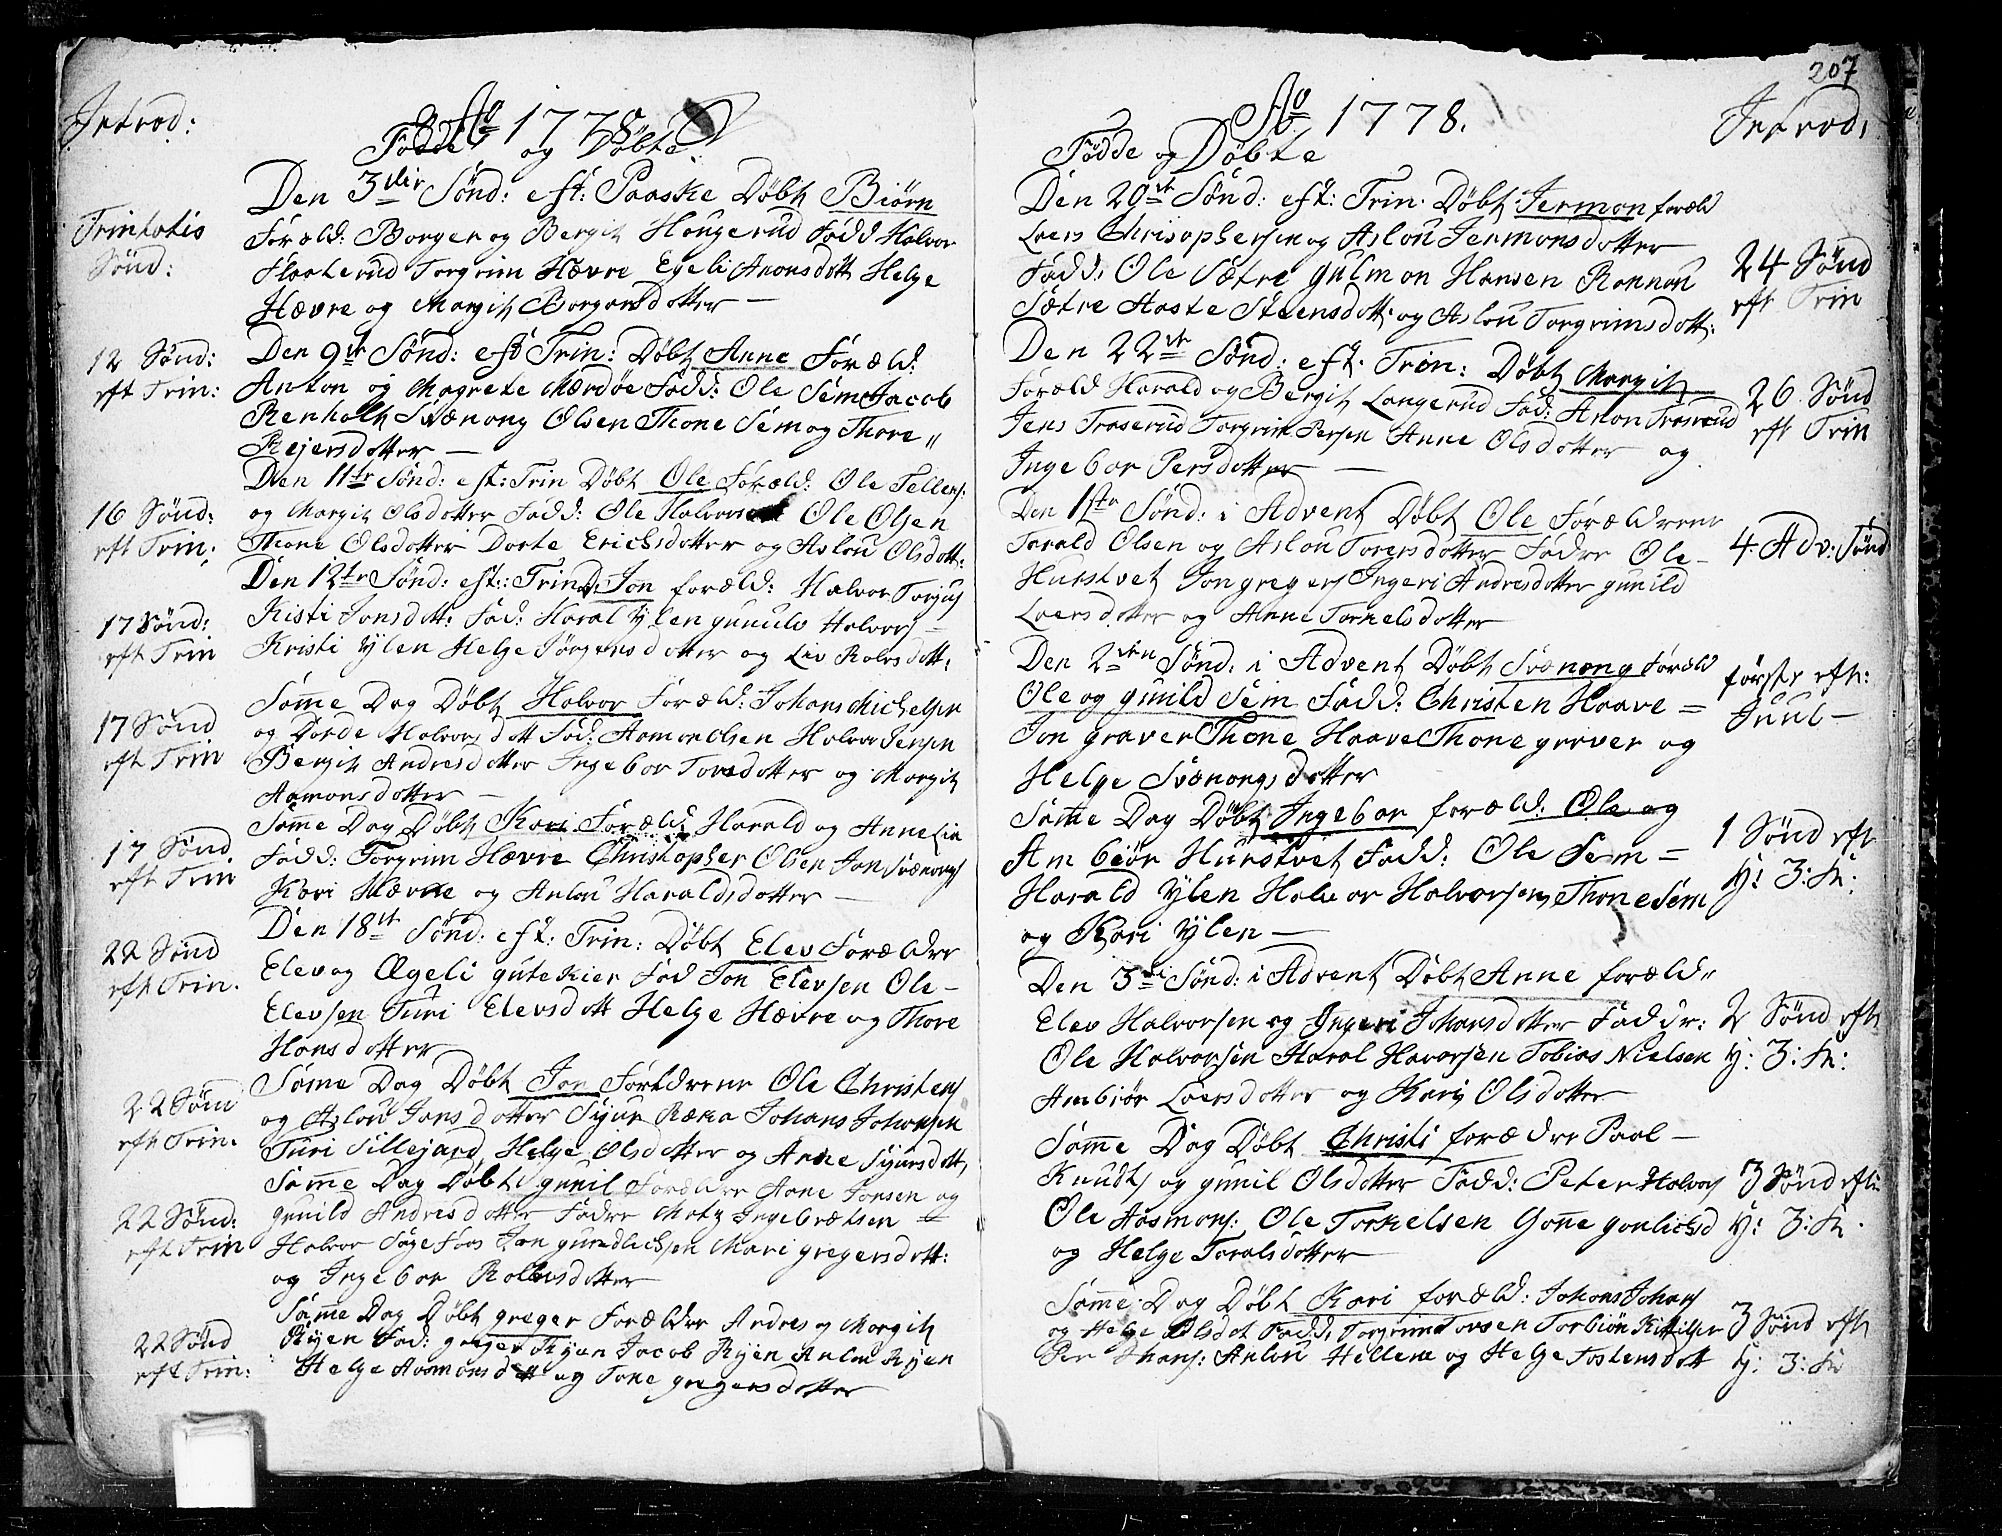 Introd:
Ao 1778
Fødde og Døbte
Trinitatis
Sønd:
Den 3die Sønd: eft: Paaske Døbt Biørn
Foræld: Borger og Bergit Hougerud Fadd Halvor
Torgrim Hævre Egeli Amonsdott Helge
Hævre og Margit Borgersdotter —
12 Sønd:
eft Trin:
Den 9de Sønd: eft Trin: Døbt Anne Foræld:
Anton og Magrete Mærdøe Fadd: Ole Sem Jacob
Renholt Svænong Olsen Thone Sem og Thore "
Rejersdotter —
16 Sønd:
eft Trin:
Den 11te Sønd: eft: Trin Døbt Ole Foræld: Ole Tellefs:
og Margit Olsdotter Fadd: Ole Halvorsen Ole Olsen
Thone Olsdotter Dorte Erichsdotter og Aslou Olsdott:
17 Sønd:
eft Trin
Den 12te Sønd: eft: Trin D: Jon foræld: Halvor Torgius
Kisti Jonsdott: Fad: Haral Ylen gunulv Halvors =
Kristi Ylen Helge Jørgensdotter og Liv Rolvsdott:
17 Sønd
eft Trin
Samme Dag Døbt Halvor Foræld: Johans Michelsen
og Dorde Halvorsdott Fad: Aamon Olsen Halvor Jensen
Bergit Andresdotter Ingebor Torsdotter og Margit
Aamonsdotter —
17 Sønd
eft Trin
Samme Dag Døbt Kari Foræld: Harald og Anne Lia
Fadd: Torgrim Hævre Christopher Olsen Jon Svænongs
Kari Hævre og Anlou Haraldsdotter —
22 Sønd
eft Trin.
Den 18de Sønd: eft: Trin: Døbt Elev Forældre
Elev og Ægeli gutekier Fad Jon Elevsen Ole —
Elevsen Turi Elevsdott Helge Hævre og Thore
Hansdotter
22 Sønd
eft Trin.
Samme Dag Døbt Jon Forældrene Ole Christens
og Aslou Jonsdotter Sjur Ræka Johans Johansen
Turi Sillejord Helge Olsdotter og Anne Sjursdott,
22 Sønd:
eft Trin
Samme Dag Døbt gunil Forældre Aane Jonsen og
gunild Andresdotter Fadre Matz Ingebretsen =
Halvor Søgefoss Jon gundlichsen Mari gregersdott:
og Ingebor Rolevsdotter
22 Sønd
eft Trin:
Samme Dag Døbt greger Forældre Andres og Margit
Ryen Fad: greger Ryen Jacob Ryen Anlou Ryen
Helge Aamonsdott og Tone gregersdotter
207
Ao 1778.
Introd,
Fødde og Døbte
Den 20de Sønd: eft: Trin. Døbt Jermon foræld
Laers Chrisophersen og Aslou Jermonsdotter
Fadd: Ole Sætre gulmon Hansen Rannou
Sætre Aaste Steensdott: og Aslou Torgrimsdott:
24 Sønd
eft Trin
Den 22de Sønd: eft: Trin: Døbt Margit
Foræld Harald og Bergit Langerud Fad: Aslon Traserud
Jens Traserud Torgrim Persen Anne Olsdotter og
Ingebor Persdotter —
26 Sønd
eft Trin
Den 1ste Sønd: i Advent Døbt Ole Forældrene
Tarald Olsen og Aslou Torgersdotter Fadre Ole —
Hurstvet Jon gregers Ingeri Andresdotter gunild
Laersdotter og Anne Torkelsdotter
4 Adv: Sønd
Den 2den Sønd: i Advent Døbt Svænong Foræld
Ole og gunild Sem Fadd: Christen Haave =
Jon graver Thone Haave Thone graver og
Helge Svænongsdotter
første eft:
Juul —
Samme Dag Døbt Ingebor foræld: Ole og
Ambiør Hurstvet Fadd: Ole Sem =
Harald Ylen Halvor Halvorsen, Thone Sem
og Kari Ylen —
1 Sønd eft
H: 3: K:
Den 3die Sønd: i Advent Døbt Anne foræld "
Elev Halvorsen og Ingeri Johansdotter Faddr:
Ole Halvorsen Haral Havorsen Tobias Nielsen
Ambiør Laersdotter og Kari Olsdotter
2 Sønd eft
H: 3: K:
Samme Dag Døbt Christi forældre Paal —
Knudts og gunil Olsdotter Fadd: Peter Halvors
Ole Aasmons: Ole Torkelsen Gonne gonlichsd
og Helge Taralsdotter
3 Sønd eft
H: 3: K.
Samme Dag Døbt Kari foræld: Johans Johans
og Helge Olsdot Fadd, Torgrim Torsen Torbiøn Kittilsen
Per Ihans: Anlou Hellene og Helge Tostensdott
3 Sønd eft
H: 3: K